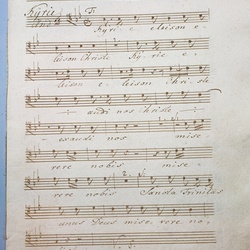 Kyrie
Kyrie eleison e-
leison Christe Kyrie e-
leison eleison Christe
audi nos Christe
exaudi nos mise-
rere nobis mise-
rere nobis Sancta Trinitas
unus Deus miserere no-